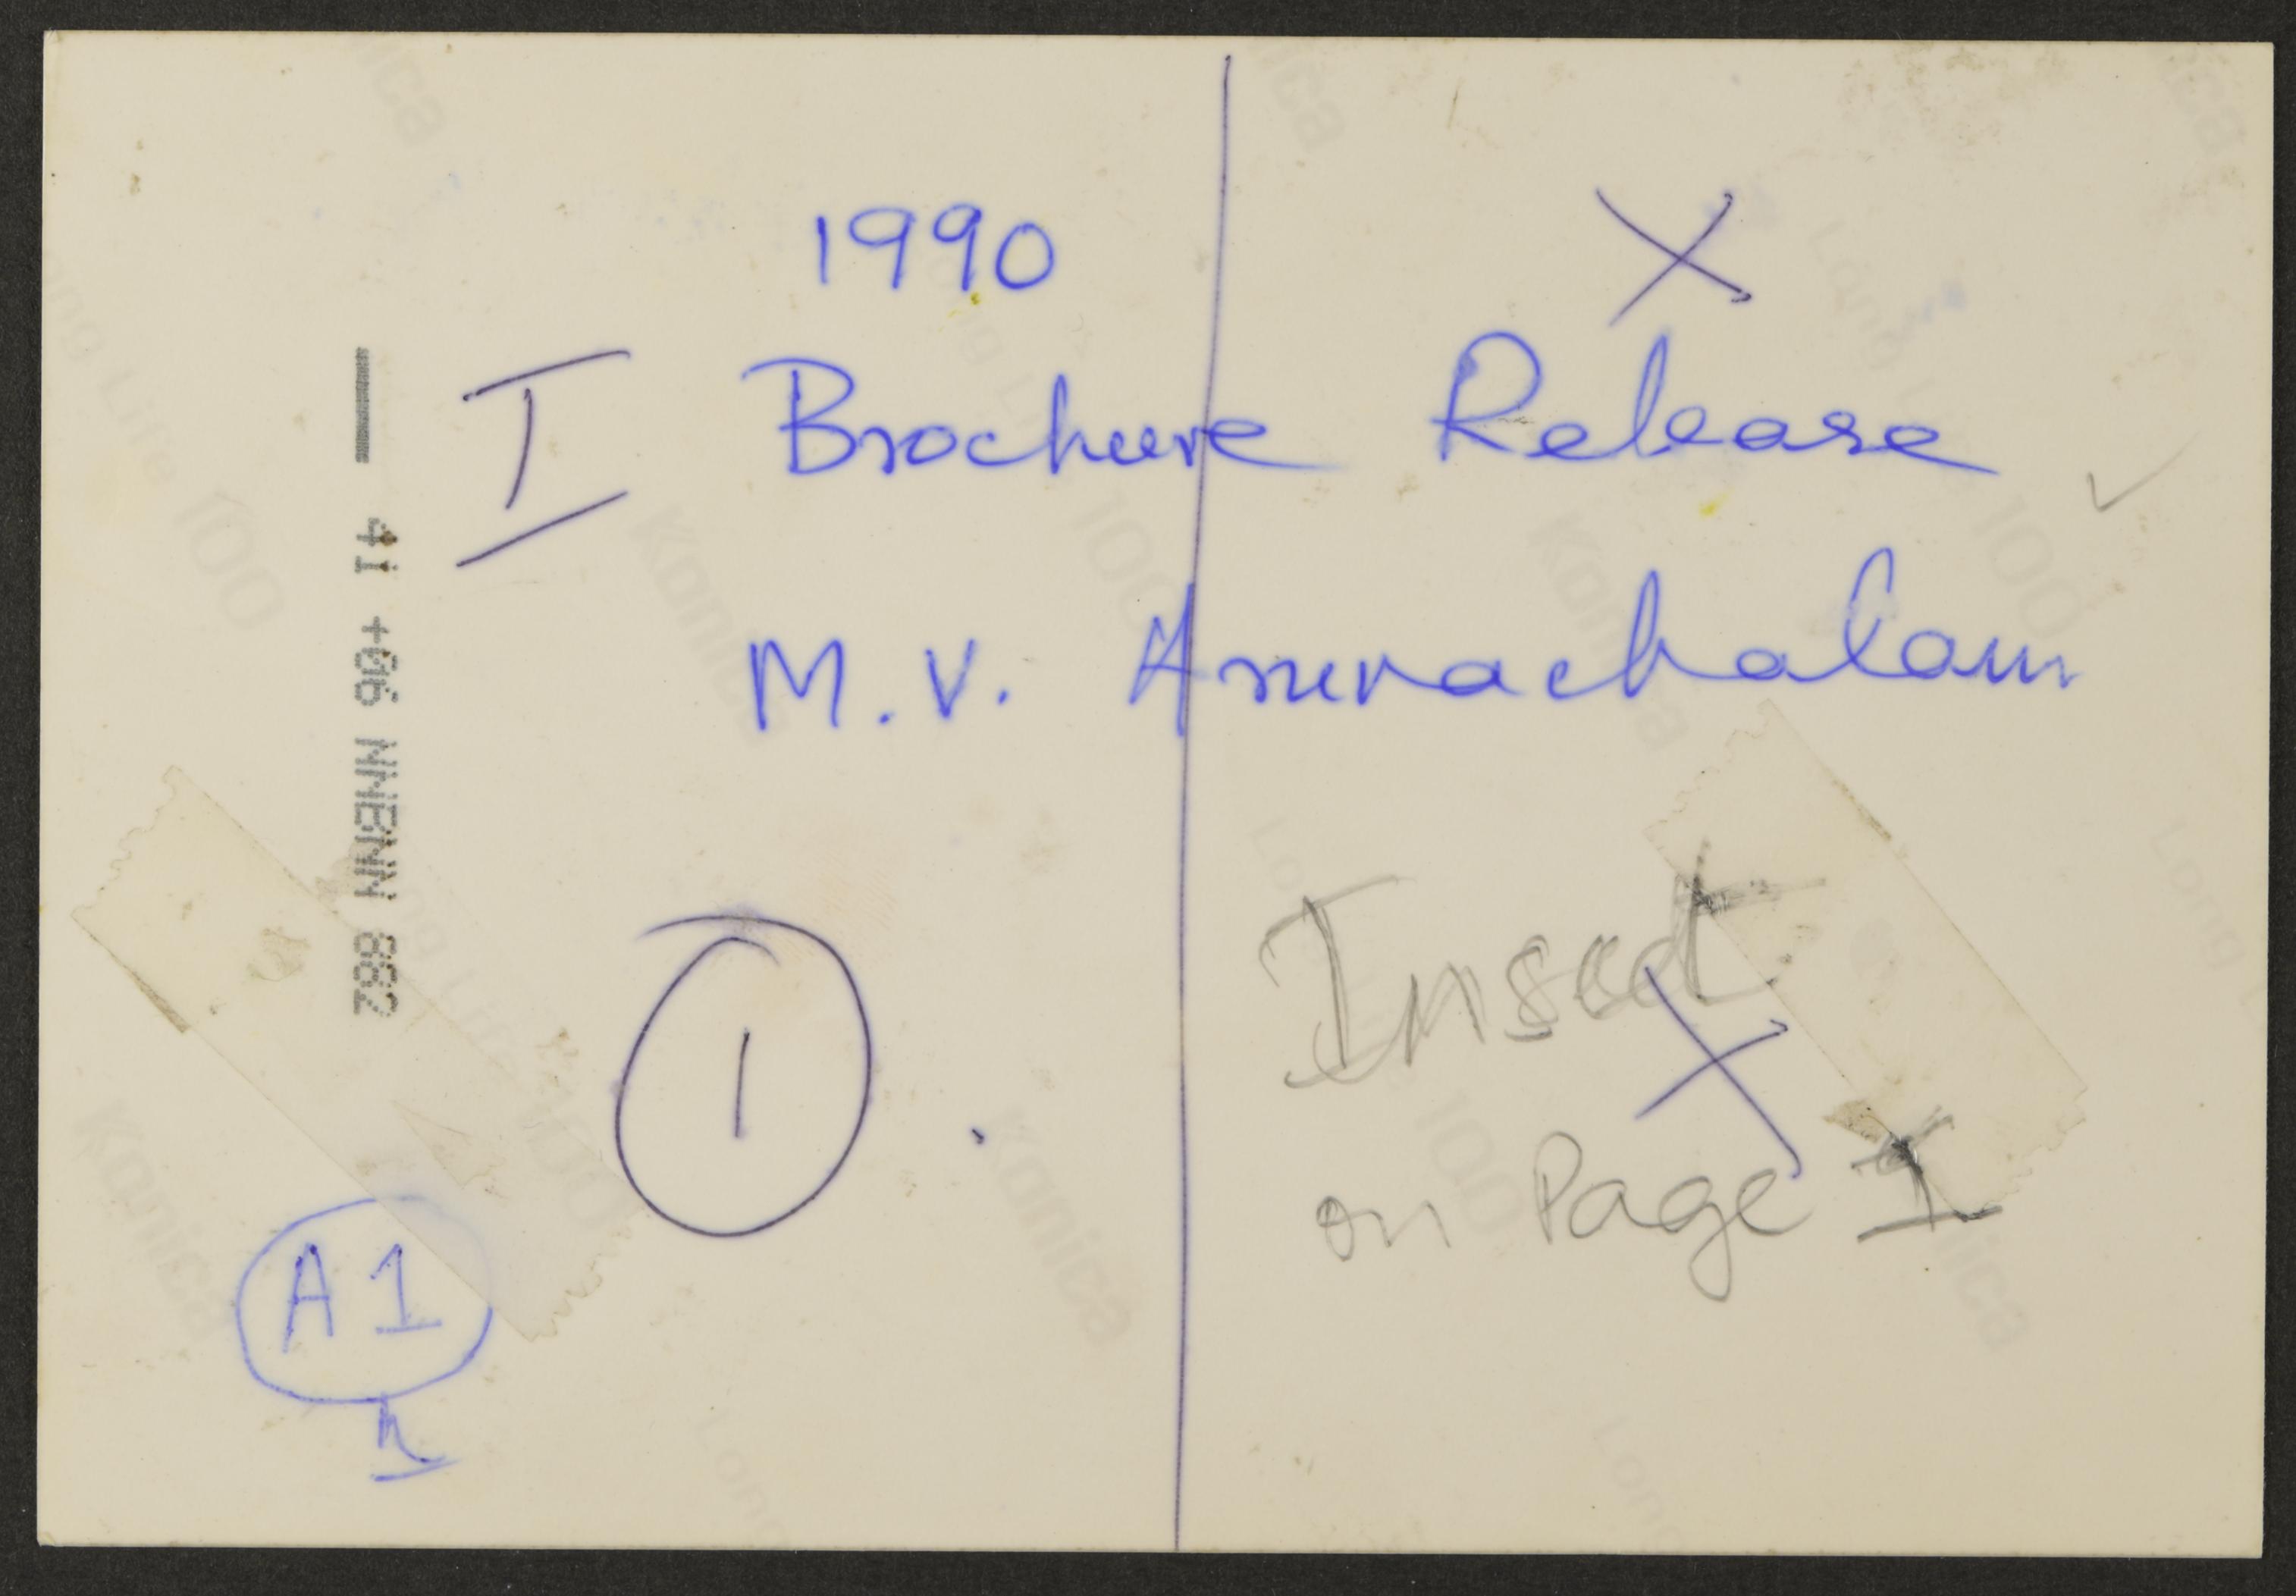 1990
X
I Brochure Release ✓
M.V. Arunachalam
41 +06 NNBNN 882
1
Insert
X
on Page 1
A1
Konica
Long Life 100